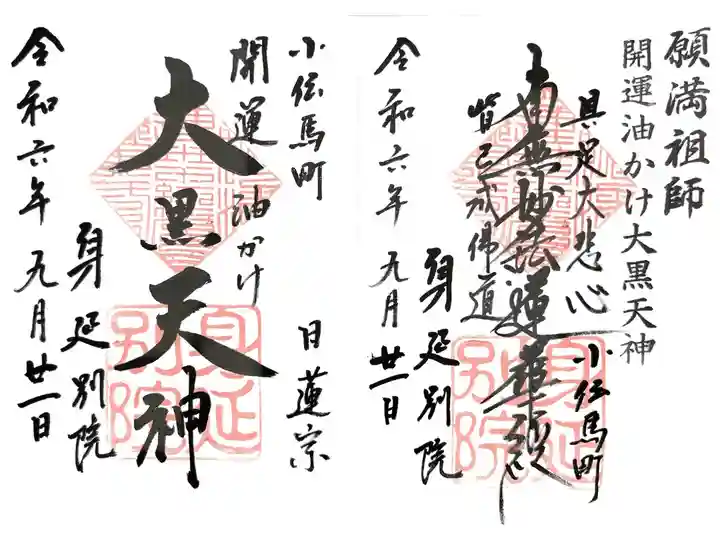 願満祖師
開運油かけ大黒天神
具足大悲心
南無妙法蓮華経
皆已成佛道
小伝馬町
身延別院
令和六年九月廿一日
身延
別院
小伝馬町
日蓮宗
開運油かけ
大黒天神
身延別院
令和六年九月廿一日
身延
別院